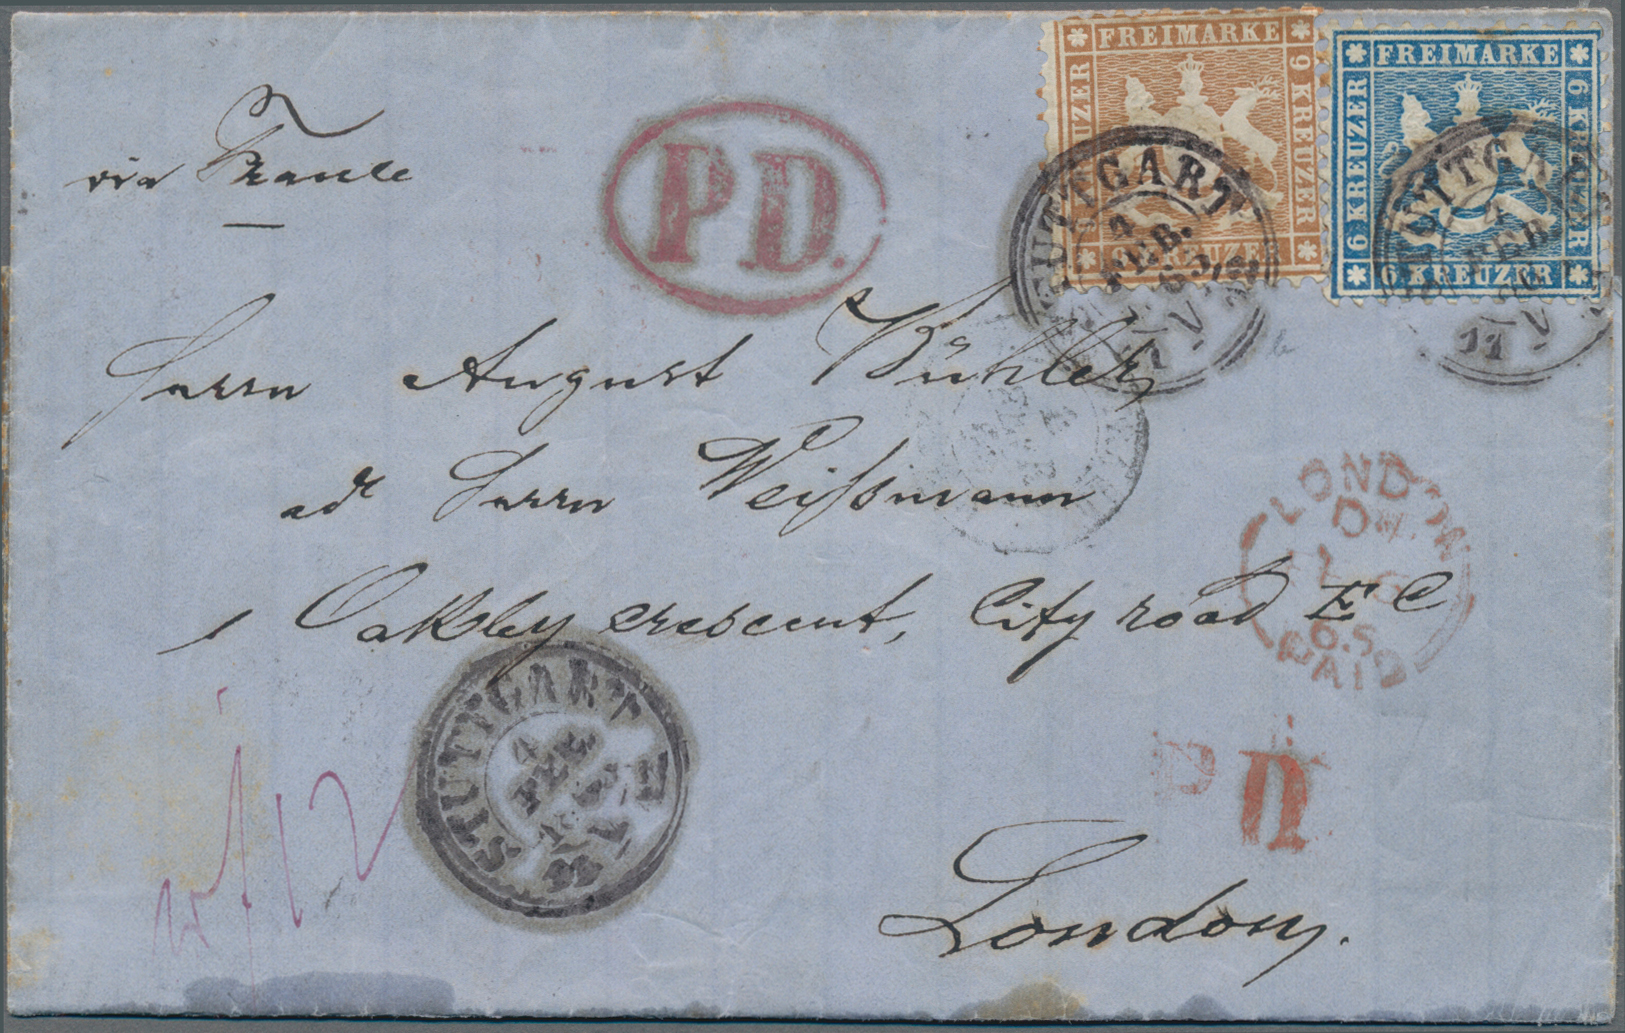 FREIMARKE
9 KREUZER
9 KREUZER
9 KREUZER
FREIMARKE
6 KREUZER
6 KREUZER
6 KREUZER
via France
P.D.
STUTTGART
4
FEB.
STUTTGART
4
FEB
Herrn August Bühler
ads Herrn Weißmann
1 Oakley crescent, City road E C
LONDON
65
PAID
STUTTGART
4
FEB.
PD
London.